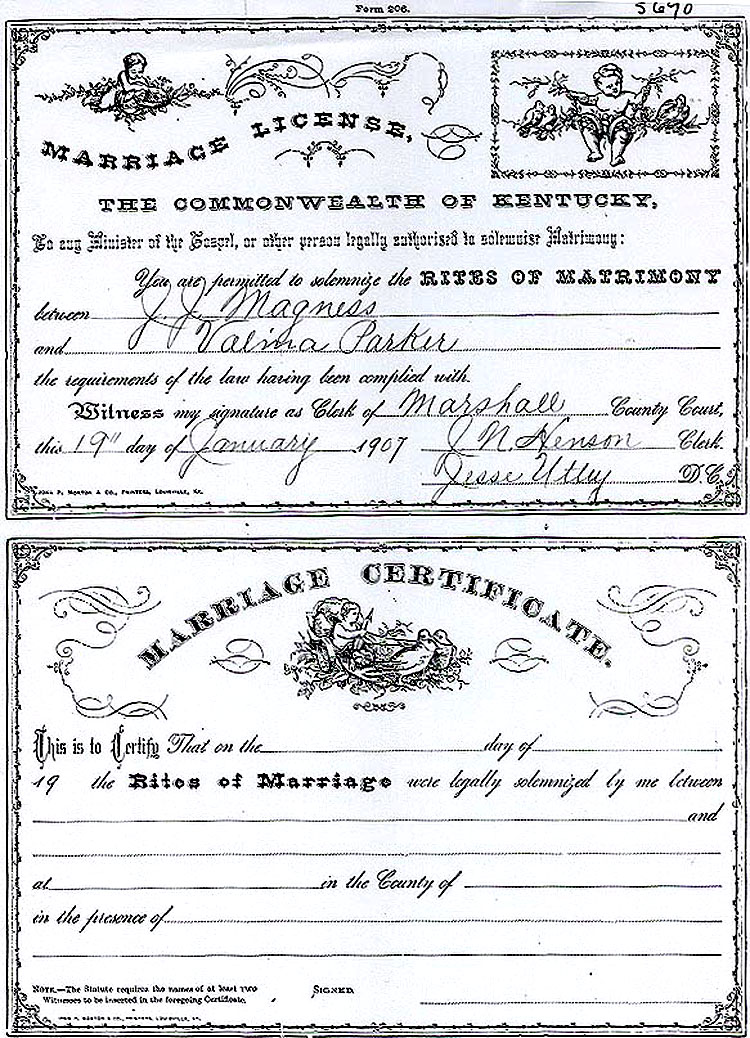 Form 206.
5670
MARRIAGE LICENSE,
THE COMMONWEALTH OF KENTUCKY,
To any Minister of the Gospel, or other person legally authorised to solemnise Matrimony:
You are permitted to solemnize the RITES OF MATRIMONY
between J. J. Magness
and Valma Parker
the requirements of the law having been complied with.
Witness my signature as Clerk of Marshall County Court,
this 19" day of January 1907 J N Henson Clerk
Jesse Utley D.C.
JOHN P. MORTON & CO., PRINTERS, LOUISVILLE, KY.
MARRIAGE CERTIFICATE.
This is to Certify That on the day of
19 the Rites of Marriage were legally solemnized by me between
and
at in the County of
in the presence of
NOTE.—The Statute requires the names of at least two SIGNED
Witnesses to be inserted in the foregoing Certificate.
JOHN P. MORTON & CO., PRINTERS, LOUISVILLE, KY.